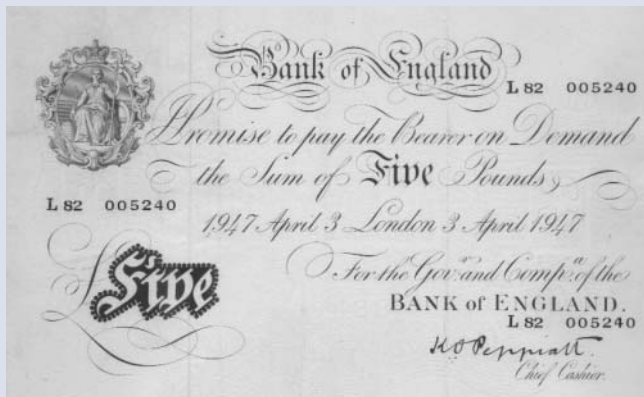 Bank of England
L 82 005240
I Promise to pay the Bearer on Demand
the Sum of Five Pounds
L 82 005240
1947 April 3 London 3 April 1947
£Five
For the Gov.r and Comp.a of the
BANK of ENGLAND.
L 82 005240
K O Peppiatt.
Chief Cashier.